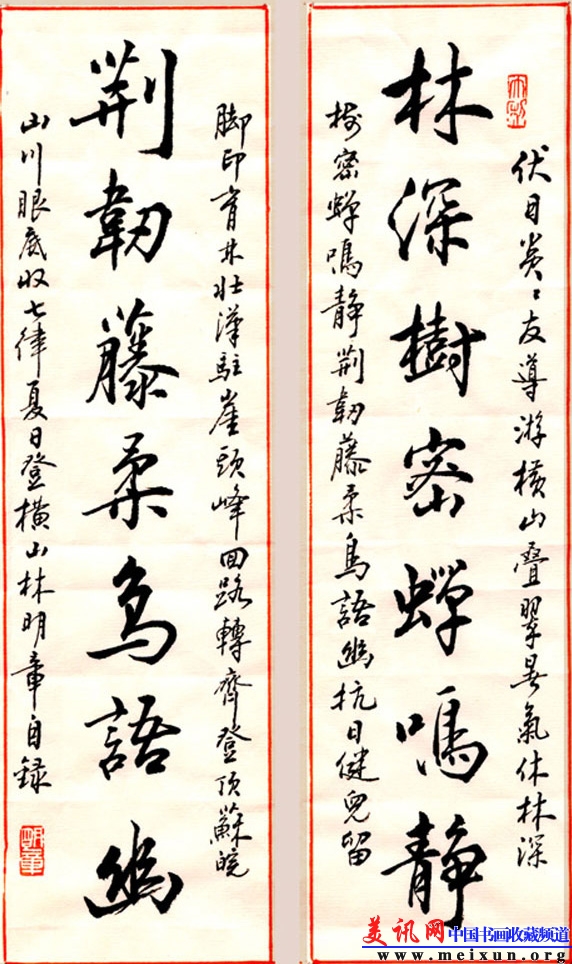 伏日炎〻友導游横山疊翠暑氣休林深
林深樹密蟬鳴靜
樹密蟬鳴靜荆韌藤柔鳥語幽抗日健兒留
脚印育林壮漢駐崖頭峰回路轉齊登頂蘇皖
荆韌藤柔鳥語幽
山川眼底收七律夏日登橫山林明章自録
明章
美讯网 中国书画收藏频道
www.meixun.org